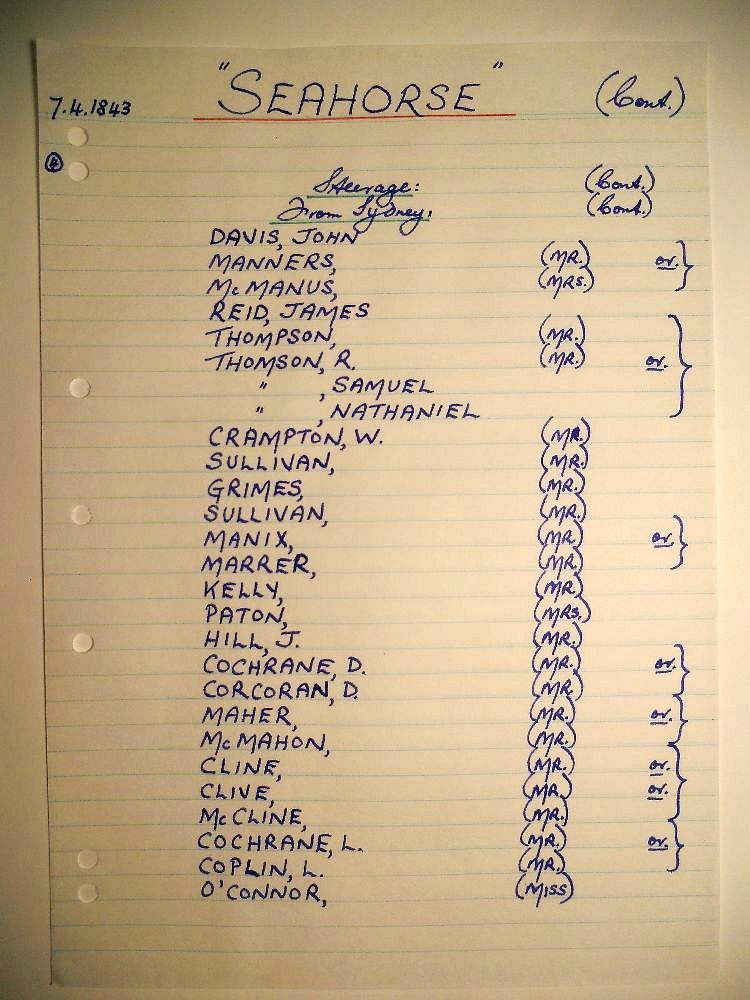 7.4.1843 "SEAHORSE" (Cont.)
4
Steerage: (Cont.)
From Sydney: (Cont.)
DAVIS, JOHN
MANNERS, (MR.) or. }
McMANUS, (MRS.)
REID, JAMES
THOMPSON, (MR.)
THOMSON, R. (MR.) or. }
" , SAMUEL
" , NATHANIEL
CRAMPTON, W. (MR.)
SULLIVAN, (MR.)
GRIMES, (MR.)
SULLIVAN, (MR.)
MANIX, (MR.) or. }
MARRER, (MR.)
KELLY, (MR.)
PATON, (MRS.)
HILL, J. (MR.)
COCHRANE, D. (MR.) or. }
CORCORAN, D. (MR.)
MAHER, (MR.) or. }
McMAHON, (MR.)
CLINE, (MR.) or. }
CLIVE, (MR.) or.
McCLINE, (MR.)
COCHRANE, L. (MR.) or. }
COPLIN, L. (MR.)
O'CONNOR, (MISS)